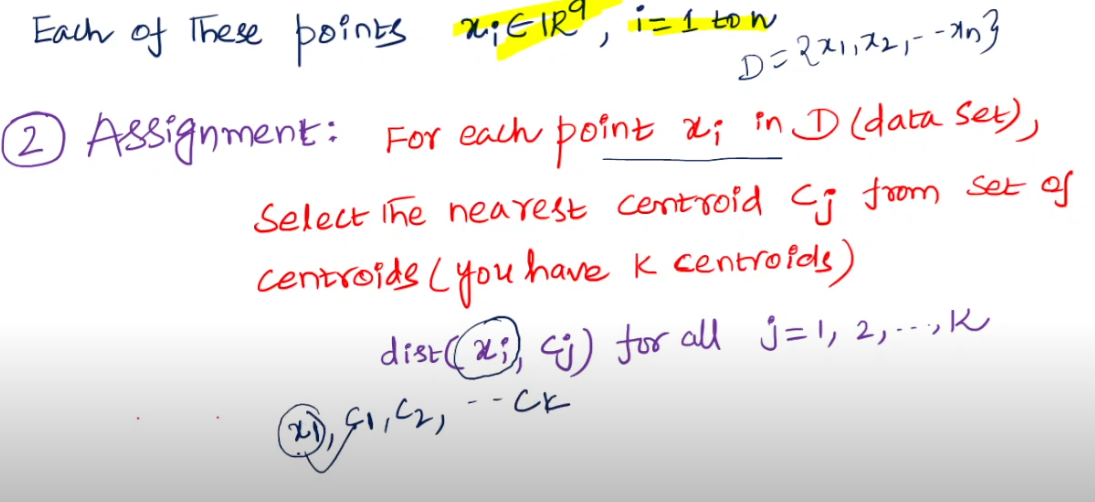 Each of These points xᵢ ∈ ℝ^q, i = 1 to n
D = {x₁, x₂, - - xₙ}
② Assignment: For each point xᵢ in D (data set),
Select The nearest centroid Cⱼ from set of
centroids (you have K centroids)
dist(xᵢ, Cⱼ) for all j = 1, 2, ..., K
x₁, C₁, C₂, - - CK